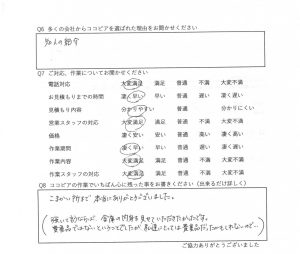 Q6 多くの会社からココピアを選ばれた理由をお聞かせください
知人の紹介
Q7 ご対応、作業についてお聞かせください
電話対応 大変満足 満足 普通 不満 大変不満
お見積もりまでの時間 凄く早い 早い 普通 遅い 凄く遅い
見積もり内容 分かりやすい 普通 分かりにくい
営業スタッフの対応 大変満足 満足 普通 不満 大変不満
価格 凄く安い 安い 普通 高い 凄く高い
作業期間 凄く早い 早い 普通 遅い 凄く遅い
作業内容 大変満足 満足 普通 不満 大変不満
作業スタッフの対応 大変満足 満足 普通 不満 大変不満
Q8 ココピアの作業でいちばん心に残った事をお書きください（出来るだけ詳しく）
こまかい所まで本当にありがとうございました。
強いて言うならば、金庫の中身を見せていただきたかったです。
貴重品ではないということでしたが、私達にとっては貴重品だったかもしれないので…
ご協力ありがとうございました